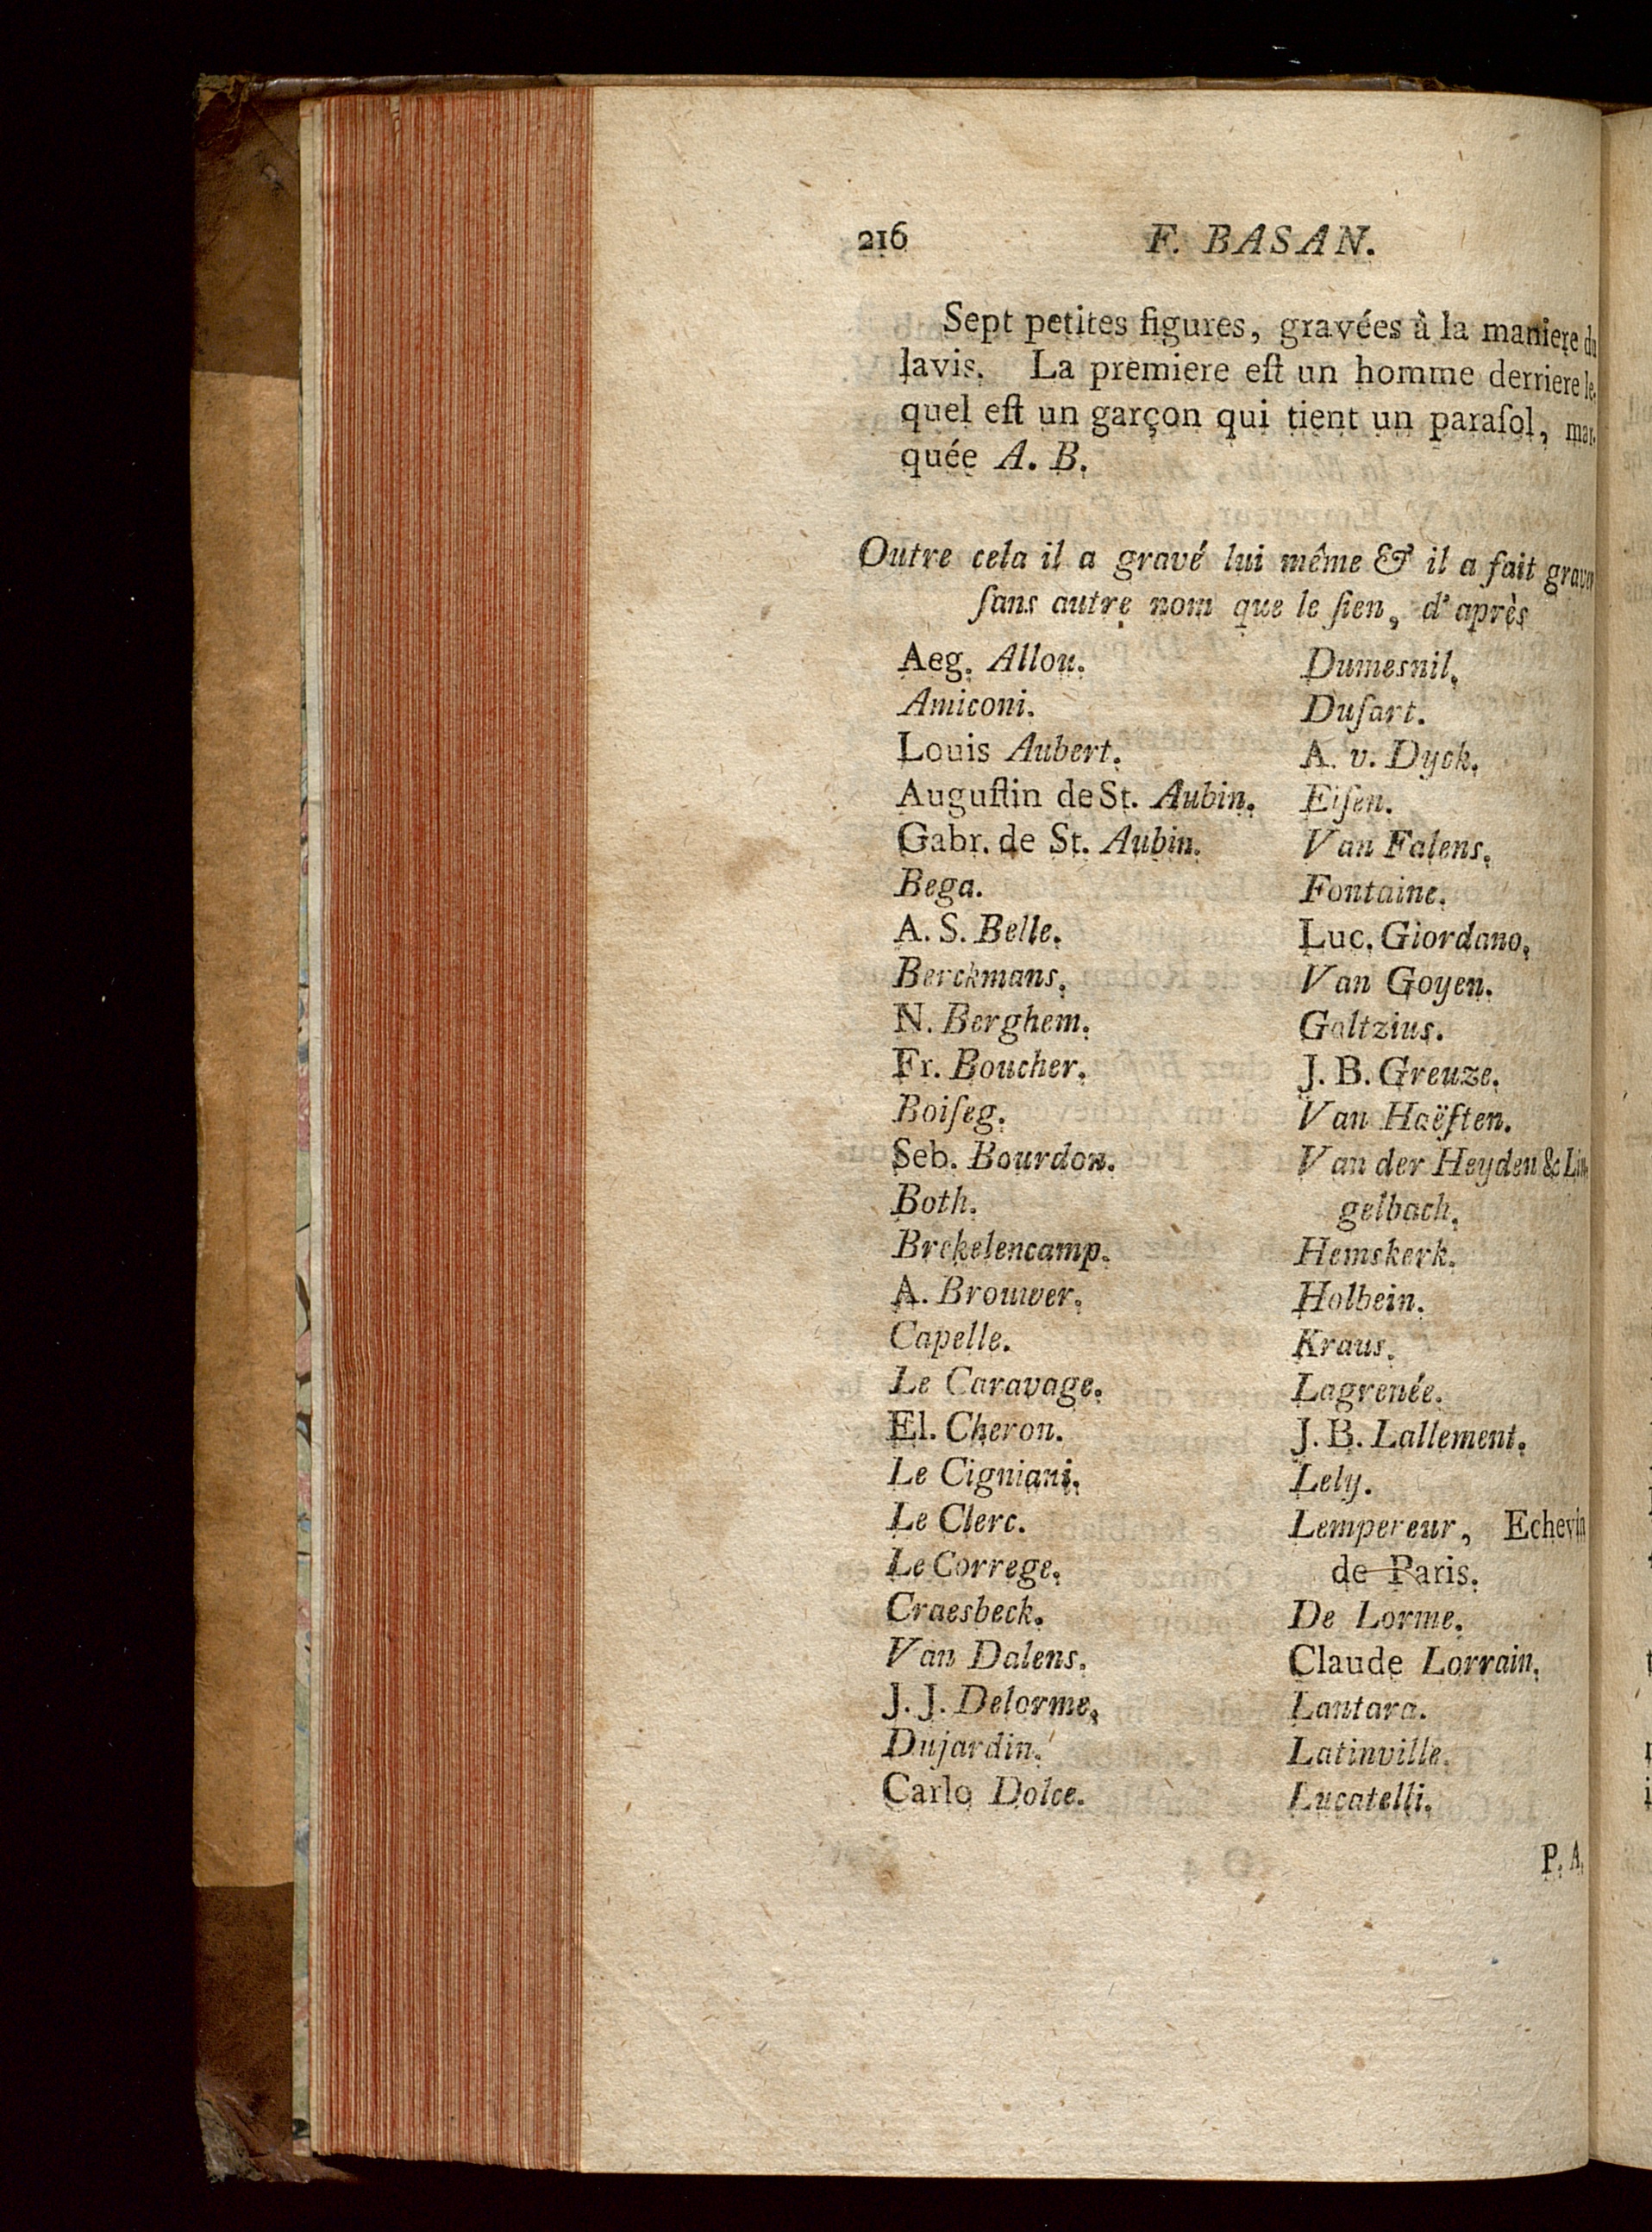 216
F. BASAN.
Sept petites figures, gravées à la maniere du
lavis. La premiere eſt un homme derriere le-
quel eſt un garçon qui tient un paraſol, mar-
quée A. B.
Outre cela il a gravé lui même & il a fait graver
ſans autre nom que le ſien, d'après
Aeg. Allou.
Amiconi.
Louis Aubert.
Auguſtin de St. Aubin.
Gabr. de St. Aubin.
Bega.
A. S. Belle.
Berckmans.
N. Berghem.
Fr. Boucher.
Boiſeg.
Seb. Bourdon.
Both.
Brekelencamp.
A. Brouwer.
Capelle.
Le Caravage.
El. Cheron.
Le Cigniani.
Le Clerc.
Le Correge.
Craesbeck.
Van Dalens.
J. J. Delorme.
Dujardin.
Carlo Dolce.
Dumesnil.
Duſart.
A. v. Dyck.
Eiſen.
Van Falens.
Fontaine.
Luc. Giordano.
Van Goyen.
Goltzius.
J. B. Greuze.
Van Haëſten.
Van der Heyden & Lin-
gelbach.
Hemskerk.
Holbein.
Kraus.
Lagrenée.
J. B. Lallement.
Lely.
Lempereur, Echevin
de Paris.
De Lorme.
Claude Lorrain.
Lantara.
Latinville.
Lucatelli.
P. A.